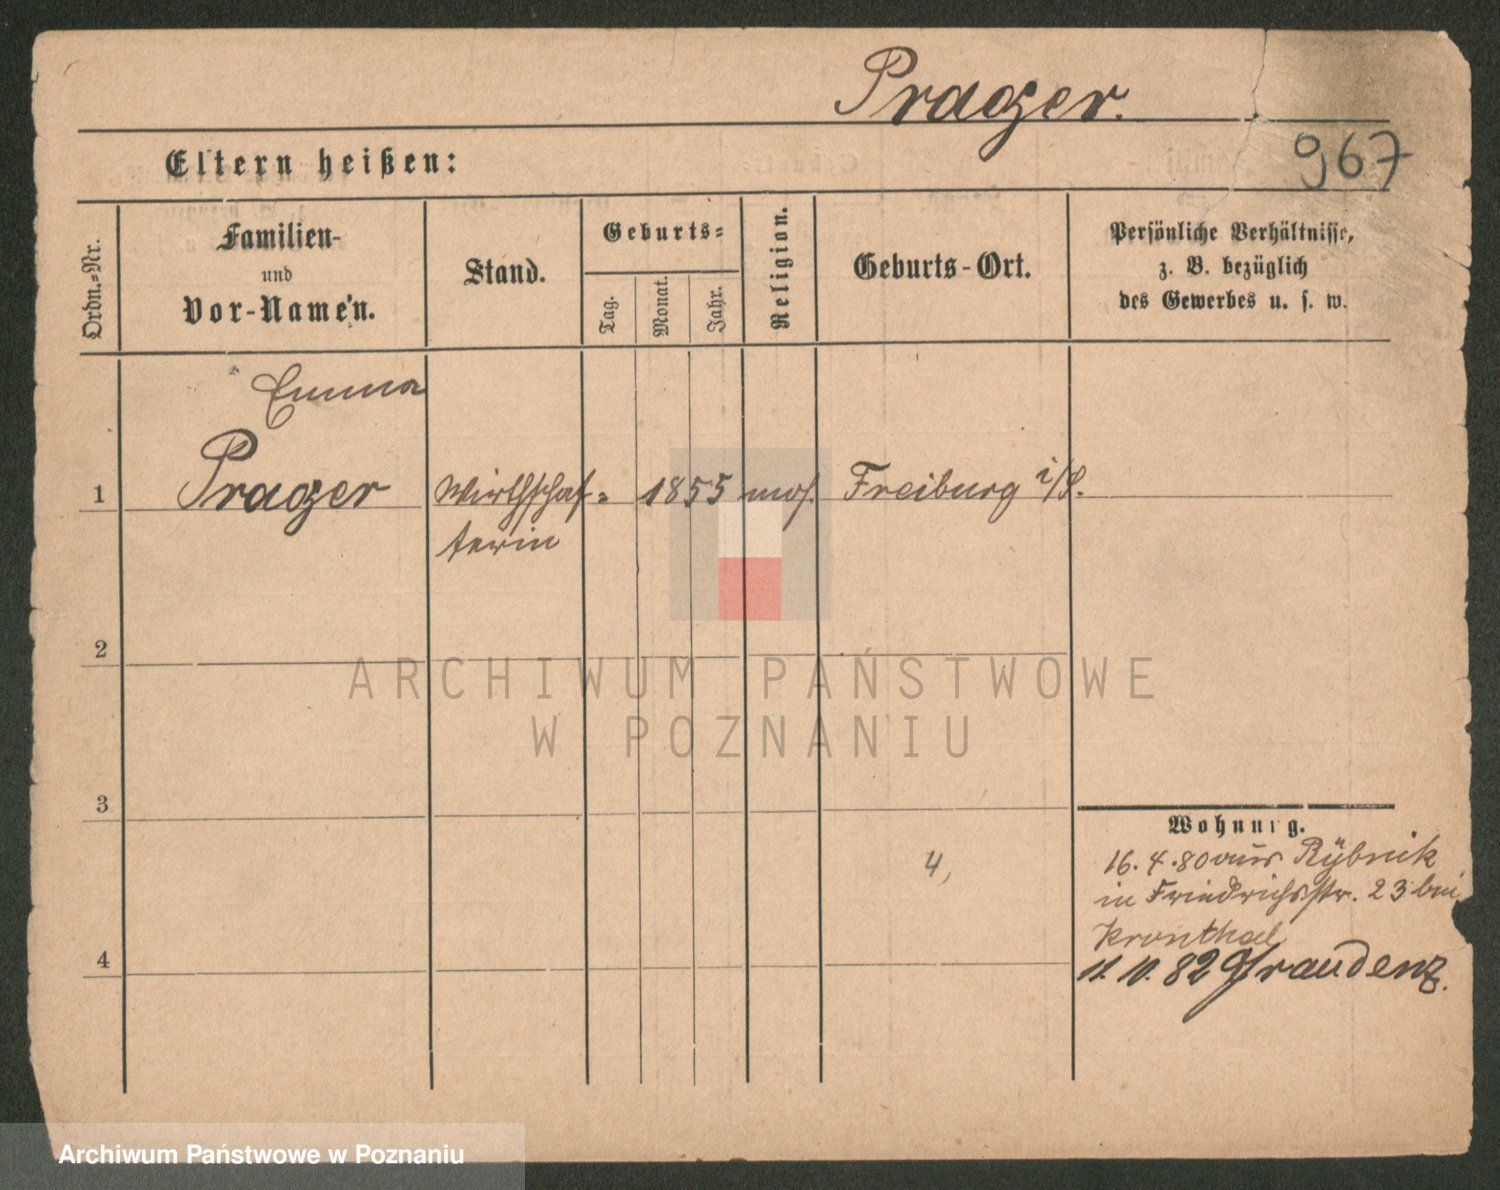 Prager.
967
Eltern heißen:
Ordn.=Nr.
Familien-
und
Vor-Name'n.
Stand.
Geburts=
Tag.
Monat.
Jahr.
Religion.
Geburts-Ort.
Persönliche Verhältnisse,
z. B. bezüglich
des Gewerbes u. s. w.
Emma
1 Prager Wirthschaf= 1855 mos. Freiburg i/S.
terin
2
ARCHIWUM PAŃSTWOWE
W POZNANIU
3
Wohnung.
16. 4. 80 aus Rybnik
4,
in Friedrichsstr. 23 bei
Kronthal
4
11. 10. 82 Graudenz.
Archiwum Państwowe w Poznaniu